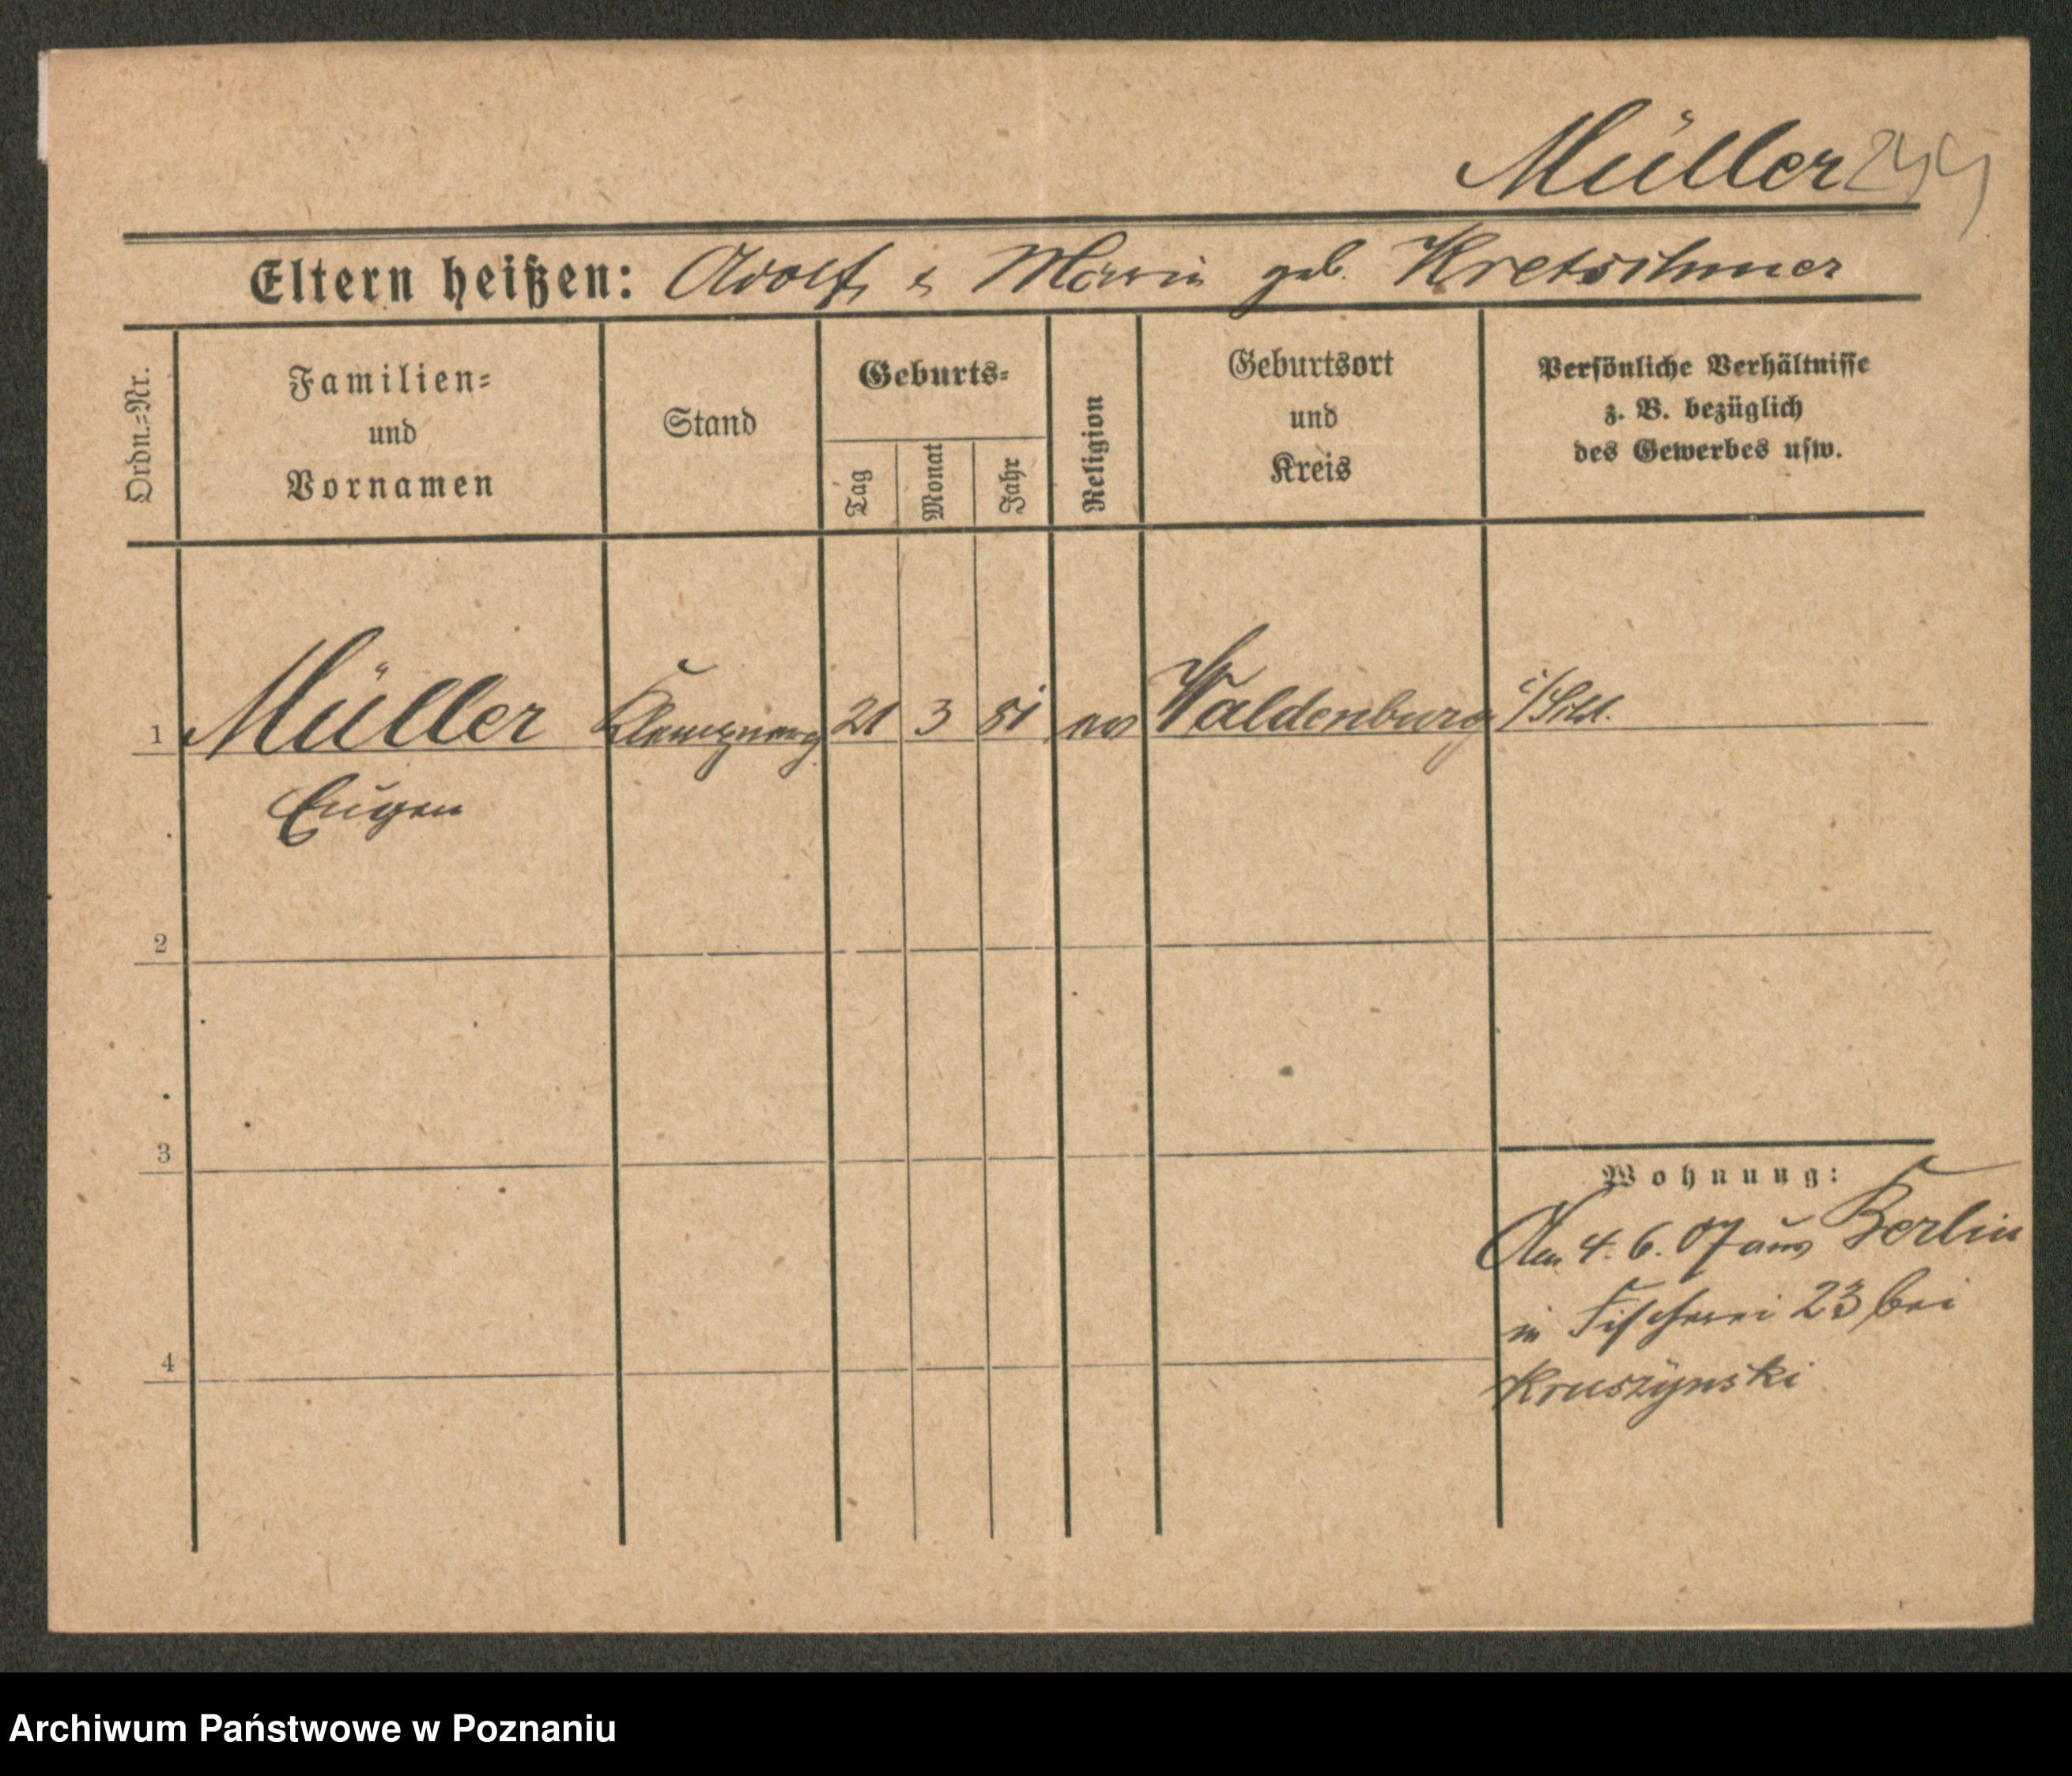 Müller
Eltern heißen: Adolf & Maria geb. Kretschmer
Ordn.=Nr.
Familien=
und
Vornamen
Stand
Geburts=
Tag
Monat
Jahr
Religion
Geburtsort
und
Kreis
Persönliche Verhältnisse
z. B. bezüglich
des Gewerbes usw.
1 Müller 21 3 81 ev Waldenburg i/Schl.
Eugen
2
3
Wohnung:
Am 4. 6. 07 aus Berlin
in Fischerei 23 bei
Kruszynski
4
Archiwum Państwowe w Poznaniu